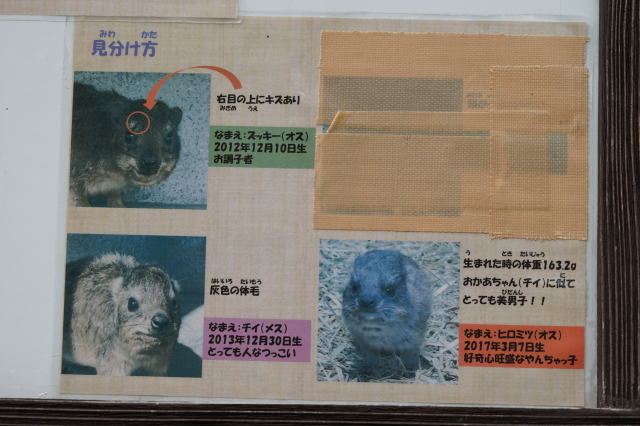 みわ かた
見分け方
右目の上にキズあり
みぎめ うえ
なまえ：ズッキー(オス)
2012年12月10日生
お調子者
はいいろ たいもう
灰色の体毛
なまえ：チイ(メス)
2013年12月30日生
とっても人なつっこい
う とき たいじゅう
生まれた時の体重163.2g
に
おかあちゃん(チイ)に似て
びだんし
とっても美男子！！
なまえ：ヒロミツ(オス)
2017年3月7日生
好奇心旺盛なやんちゃっ子